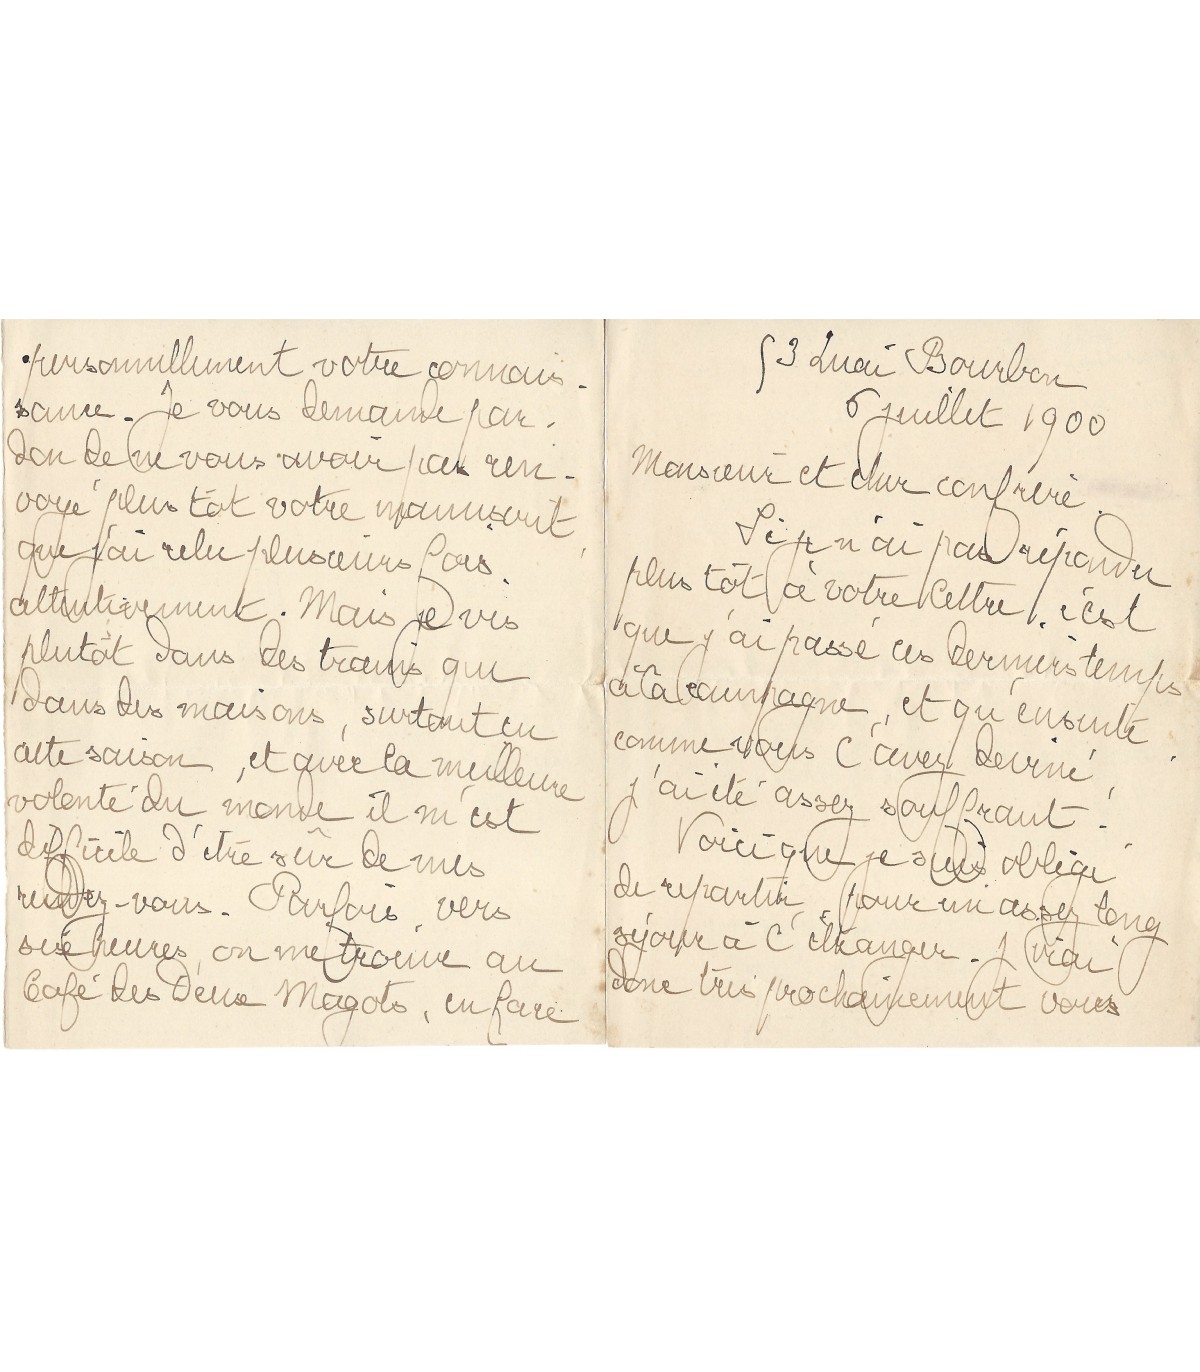 53 Quai Bourbon
6 juillet 1900
Monsieur et cher confrère.
Si je n'ai pas répondu
plus tôt à votre lettre, c'est
que j'ai passé ces derniers temps
à la campagne, et qu'ensuite
comme vous l'avez deviné
j'ai été assez souffrant.
Voici que je suis obligé
de repartir, pour un assez long
séjour à l'étranger. J'irai
donc très prochainement vous
personnellement votre connais-
sance. Je vous demande par-
don de ne vous avoir pas ren-
voyé plus tôt votre manuscrit,
que j'ai relu plusieurs fois
attentivement. Mais je vis
plutôt dans des trains que
dans des maisons, surtout en
cette saison, et avec la meilleure
volonté du monde il m'est
difficile d'être sûr de mes
rendez-vous. Parfois, vers
six heures, on me trouve au
Café des Deux Magots, en face